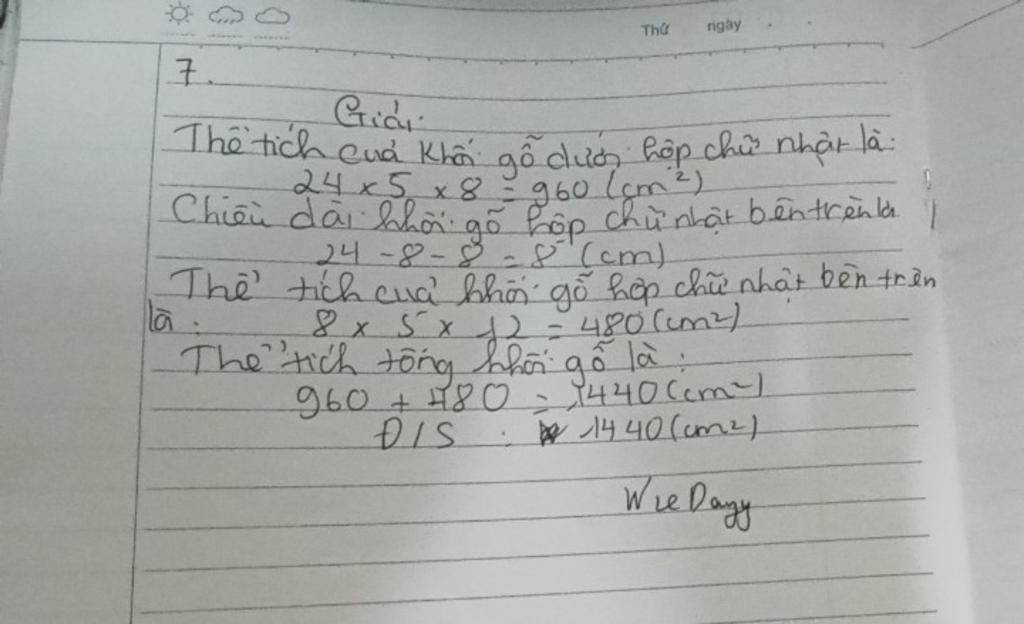 Thứ ngày
7.
Giải:
Thể tích của khối gỗ dưới hộp chữ nhật là:
24 x 5 x 8 = 960 (cm²)
Chiều dài khối gỗ hộp chữ nhật bên trên là
24 - 8 - 8 = 8 (cm)
Thể tích của khối gỗ hộp chữ nhật bên trên
là: 8 x 5 x 12 = 480 (cm²)
Thể tích tổng khối gỗ là:
960 + 480 = 1440 (cm²)
Đ/S: 1440 (cm²)